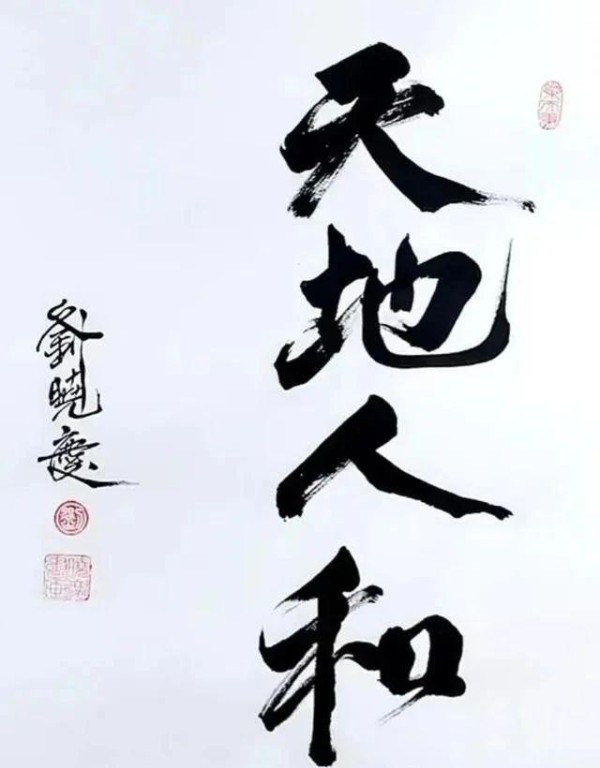 天地人和
劉曉慶